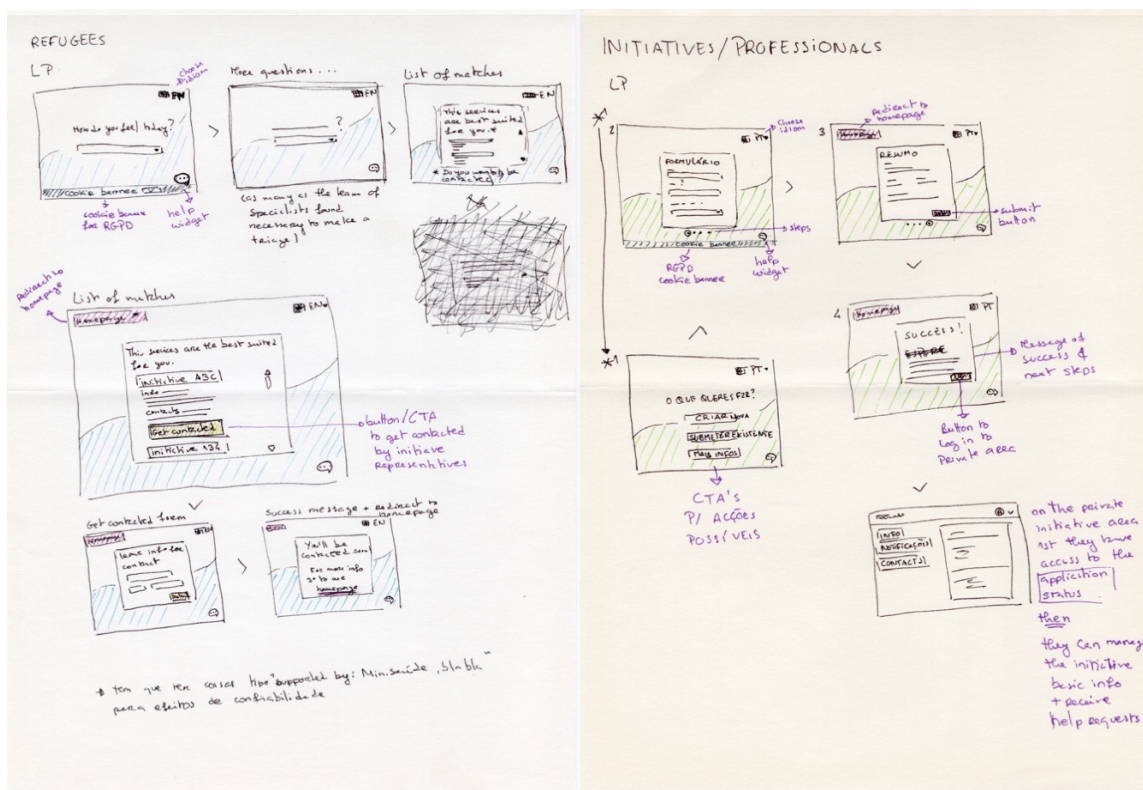 REFUGEES
LP.
Choose
idiom
EN
How do you feel today?
cookie banner
cookie banner
for RGPD
help
widget
More questions...
EN
?
(as many as the team of
specialists found
necessary to make a
triage)
List of matches
EN
This services
are best suited
for you.
* Do you want to be
contacted
Redirect to
homepage
List of matches
Homepage
EN
This services are the best suited
for you.
initictive ABC
info
contacts
Get contacted
initictive 134
button/CTA
to get contacted
by initiave
Representitives
Get contacted form
Homepage
EN
leave info for
contact
Success message + redirect to
homepage
EN
You'll be
contacted soon!
For more info
go to our
homepage
* tem que ter coisas tipo "supported by: Min. saúde, blabla"
para efeitos de confiabilidade
INITIATIVES/PROFESSIONALS
LP
2
PT
Choose
idiom
FORMULÁRIO
?
steps
cookie banner
RGPD
cookie bannee
help
widget
3
Redirect to
homepage
Homepage
PT
RESUMO
submit
button
4
Homepage
PT
SUCCESS!
Message of
success &
next steps
Button to
Log in to
Private area
*1
PT
O QUE QUERES FZR?
CRIAR NOVA
SUBMETER EXISTENTE
MAIS INFOS
CTA'S
P/ ACÇÕES
POSSÍVEIS
INFO
NOTIFICAÇÕES
CONTACTS
on the private
initiative area
1st they have
access to the
application
status.
then
they can manag
the initiative
basic info
+ receive
help requests